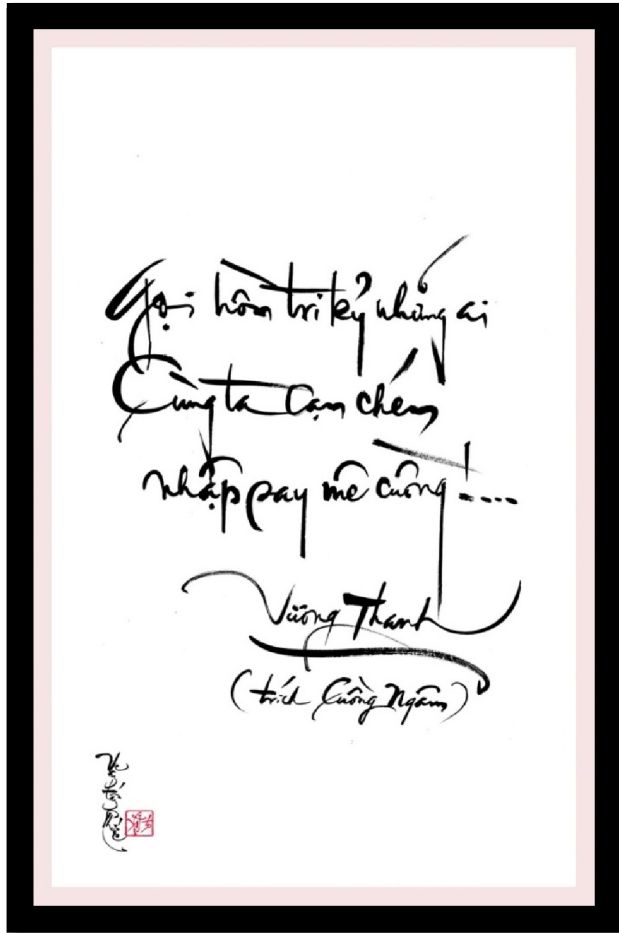 Gọi hồn tri kỷ những ai
Cùng ta cạn chén
nhập say mê cuồng!....
Vương Thanh
(trích Cuồng Ngâm)